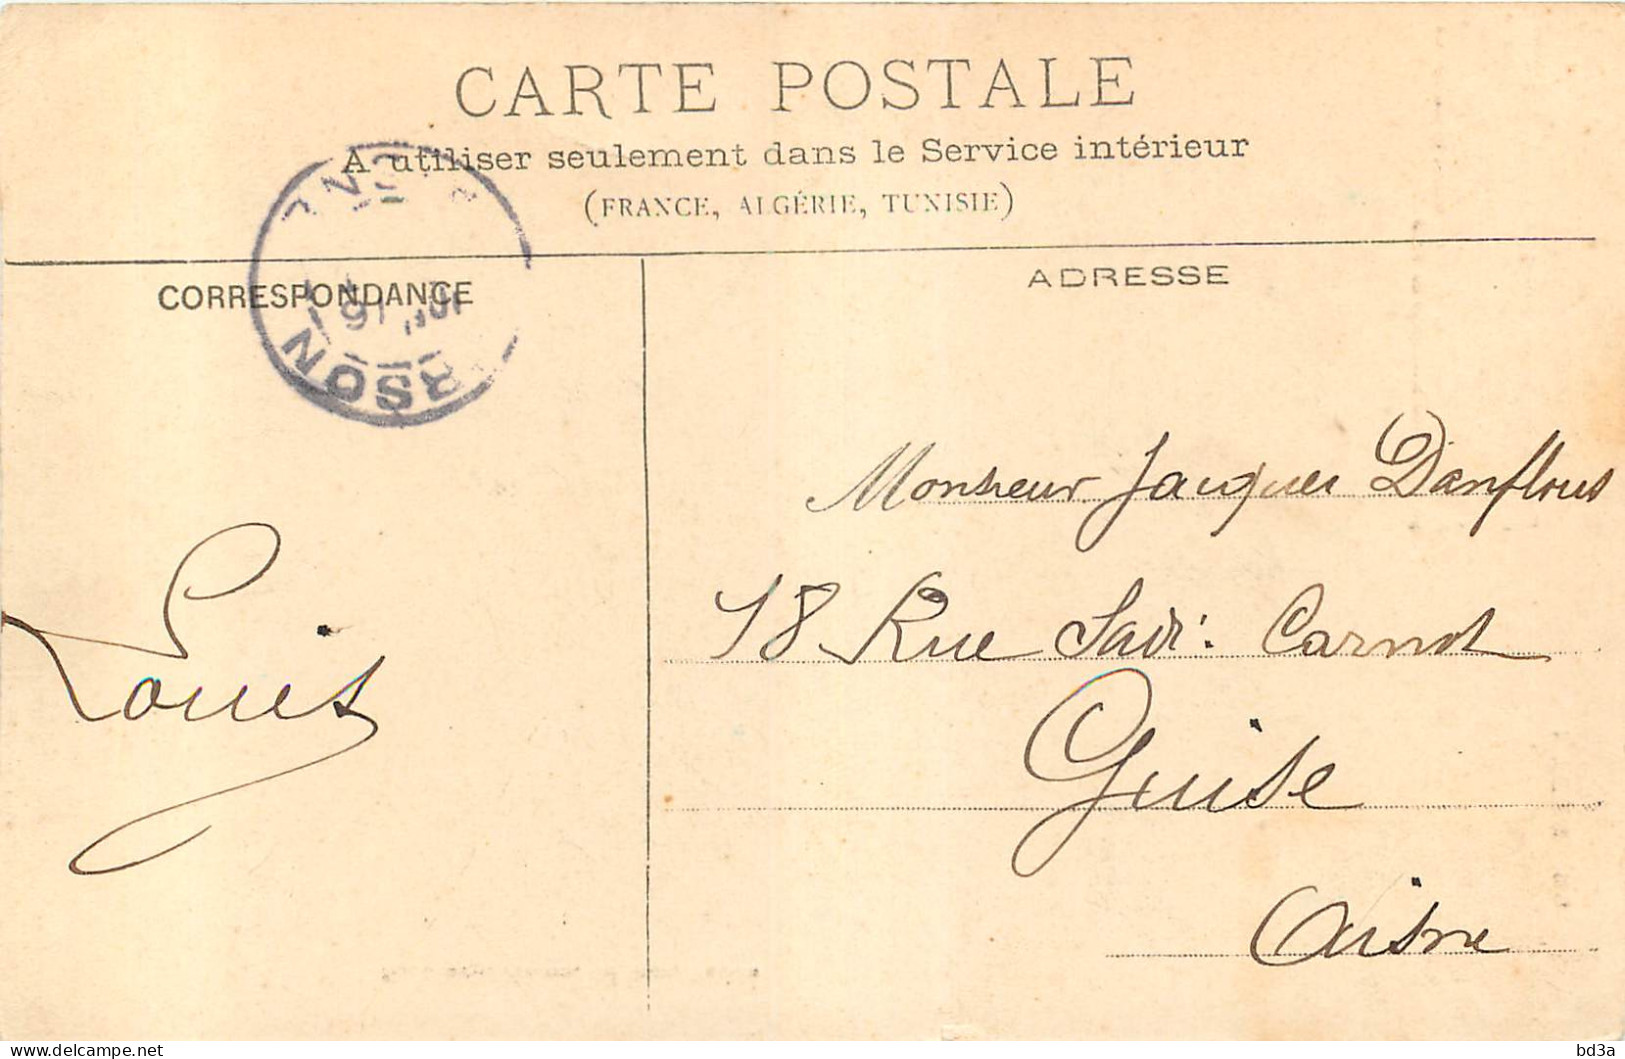 CARTE POSTALE
A utiliser seulement dans le Service intérieur
(FRANCE, ALGÉRIE, TUNISIE)
CORRESPONDANCE
ADRESSE
RSON
Louis
Monsieur Jacques Danflous
18 Rue Sadi Carnot
Guise
Aisne
bd3a